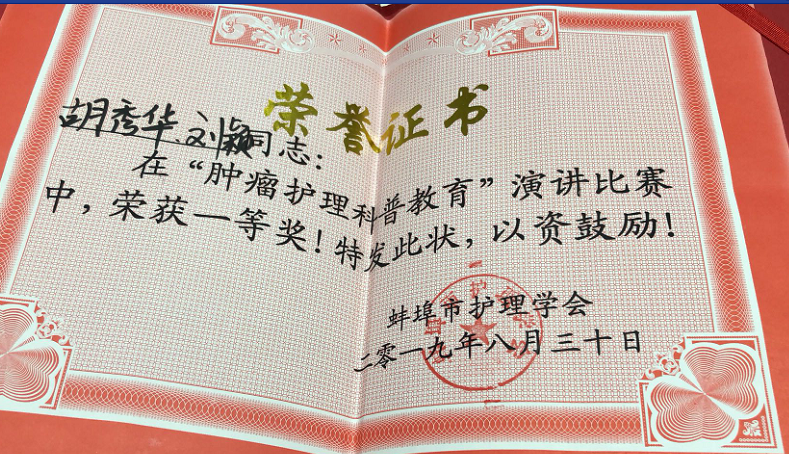 荣誉证书
胡秀华、刘颖同志：
在“肿瘤护理科普教育”演讲比赛
中，荣获一等奖！特发此状，以资鼓励！
蚌埠市护理学会
二零一九年八月三十日